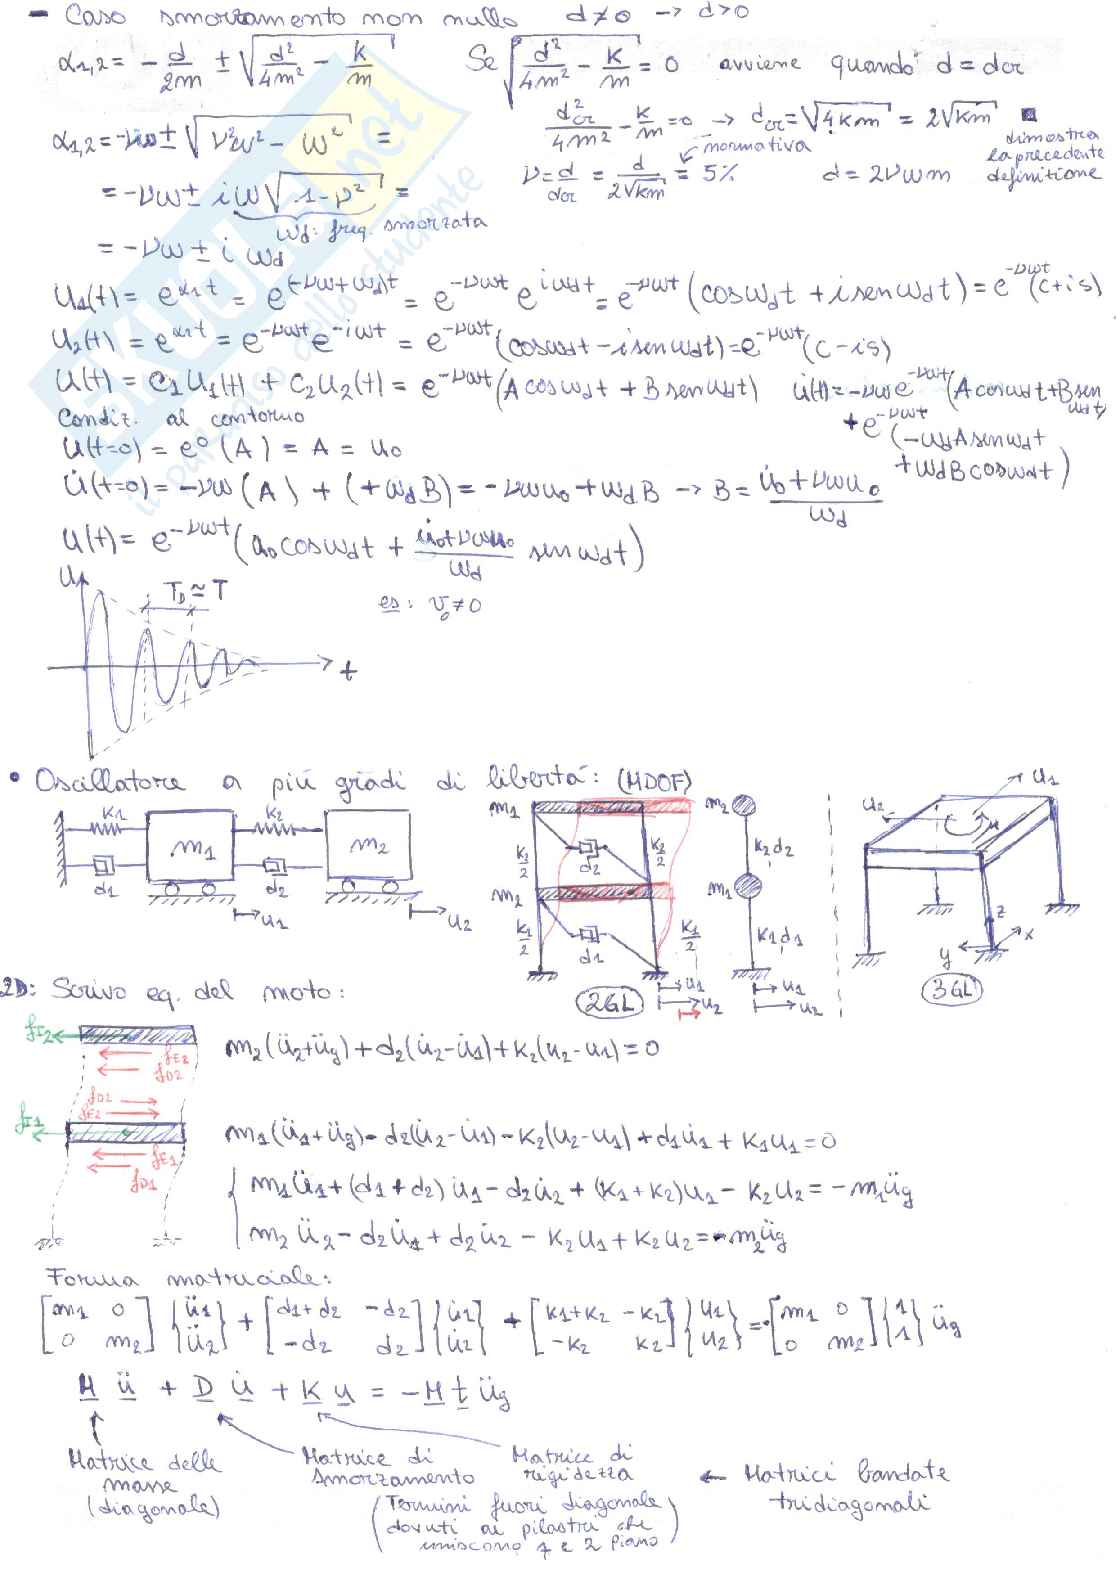 - Caso smorzamento non nullo d≠0 → d>0
α1,2 = - d/2m ± √(d²/4m² - k/m) Se √(d²/4m² - k/m) = 0 avviene quando d = dcr
dcr²/4m² - k/m = 0 → dcr = √4km = 2√km ■
dimostra la precedente definitione
α1,2 = -νω ± √(ν²ω² - ω²) =
ν = d/dcr = d/2√km = 5% normativa d = 2νωm
= -νω ± iω√(1-ν²) =
ωd: freq. smorzata
= -νω ± i ωd
U1(t) = e^(α1t) = e^(-νω+ωd)t = e^(-νωt) e^(iωdt) = e^(-νωt) (cosωdt + i senωdt) = e^(-νωt) (c+is)
U2(t) = e^(α2t) = e^(-νωt) e^(-iωt) = e^(-νωt) (cosωdt - i senωdt) = e^(-νωt) (c-is)
U(t) = C1U1(t) + C2U2(t) = e^(-νωt) (A cosωdt + B senωdt) u̇(t) = -νω e^(-νωt) (A cosωdt + B sen ωdt)
+ e^(-νωt) (-ωd A senωdt + ωd B cosωdt)
Condiz. al contorno
U(t=0) = e⁰ (A) = A = u0
u̇(t=0) = -νω (A) + (+ωdB) = -νωu0 + ωdB → B = (u̇0 + νωu0)/ωd
U(t) = e^(-νωt) (u0 cosωdt + (u̇0+νωu0)/ωd senωdt)
U
TD ≃ T
es: v0 ≠ 0
t
• Oscillatore a più gradi di libertà: (MDOF)
k1 k2
m1 m2
d1 d2
u1 u2
m1
k2/2 d2 k2/2
m2
k1/2 d1 k1/2
2GL
u1
u2
m2
k2, d2
m1
k1, d1
u1
u2
u1
u2
z
x
y
3GL
2D: Scrivo eq. del moto:
fI2
fE2
fD2
m2(ü2+üg) + d2(u̇2-u̇1) + k2(u2-u1) = 0
fD2
fE2
fI1
fE1
fD1
m1(ü1+üg) - d2(u̇2-u̇1) - k2(u2-u1) + d1u̇1 + k1u1 = 0
{ m1ü1 + (d1+d2) u̇1 - d2u̇2 + (k1+k2)u1 - k2u2 = -m1üg
m2 ü2 - d2u̇1 + d2u̇2 - k2u1 + k2u2 = -m2üg
Forma matriciale:
[m1 0] {ü1} + [d1+d2 -d2] {u̇1} + [k1+k2 -k2] {u1} = -[m1 0] {1} üg
[0 m2] {ü2} [-d2 d2] {u̇2} [-k2 k2] {u2} [0 m2] {1}
M ü + D u̇ + K u = -M t üg
Matrice delle masse (diagonale)
Matrice di smorzamento
Matrice di rigidezza
← Matrici bandate tridiagonali
(Termini fuori diagonale dovuti ai pilastri che uniscono 1 e 2 piano)
SKUOLA.net